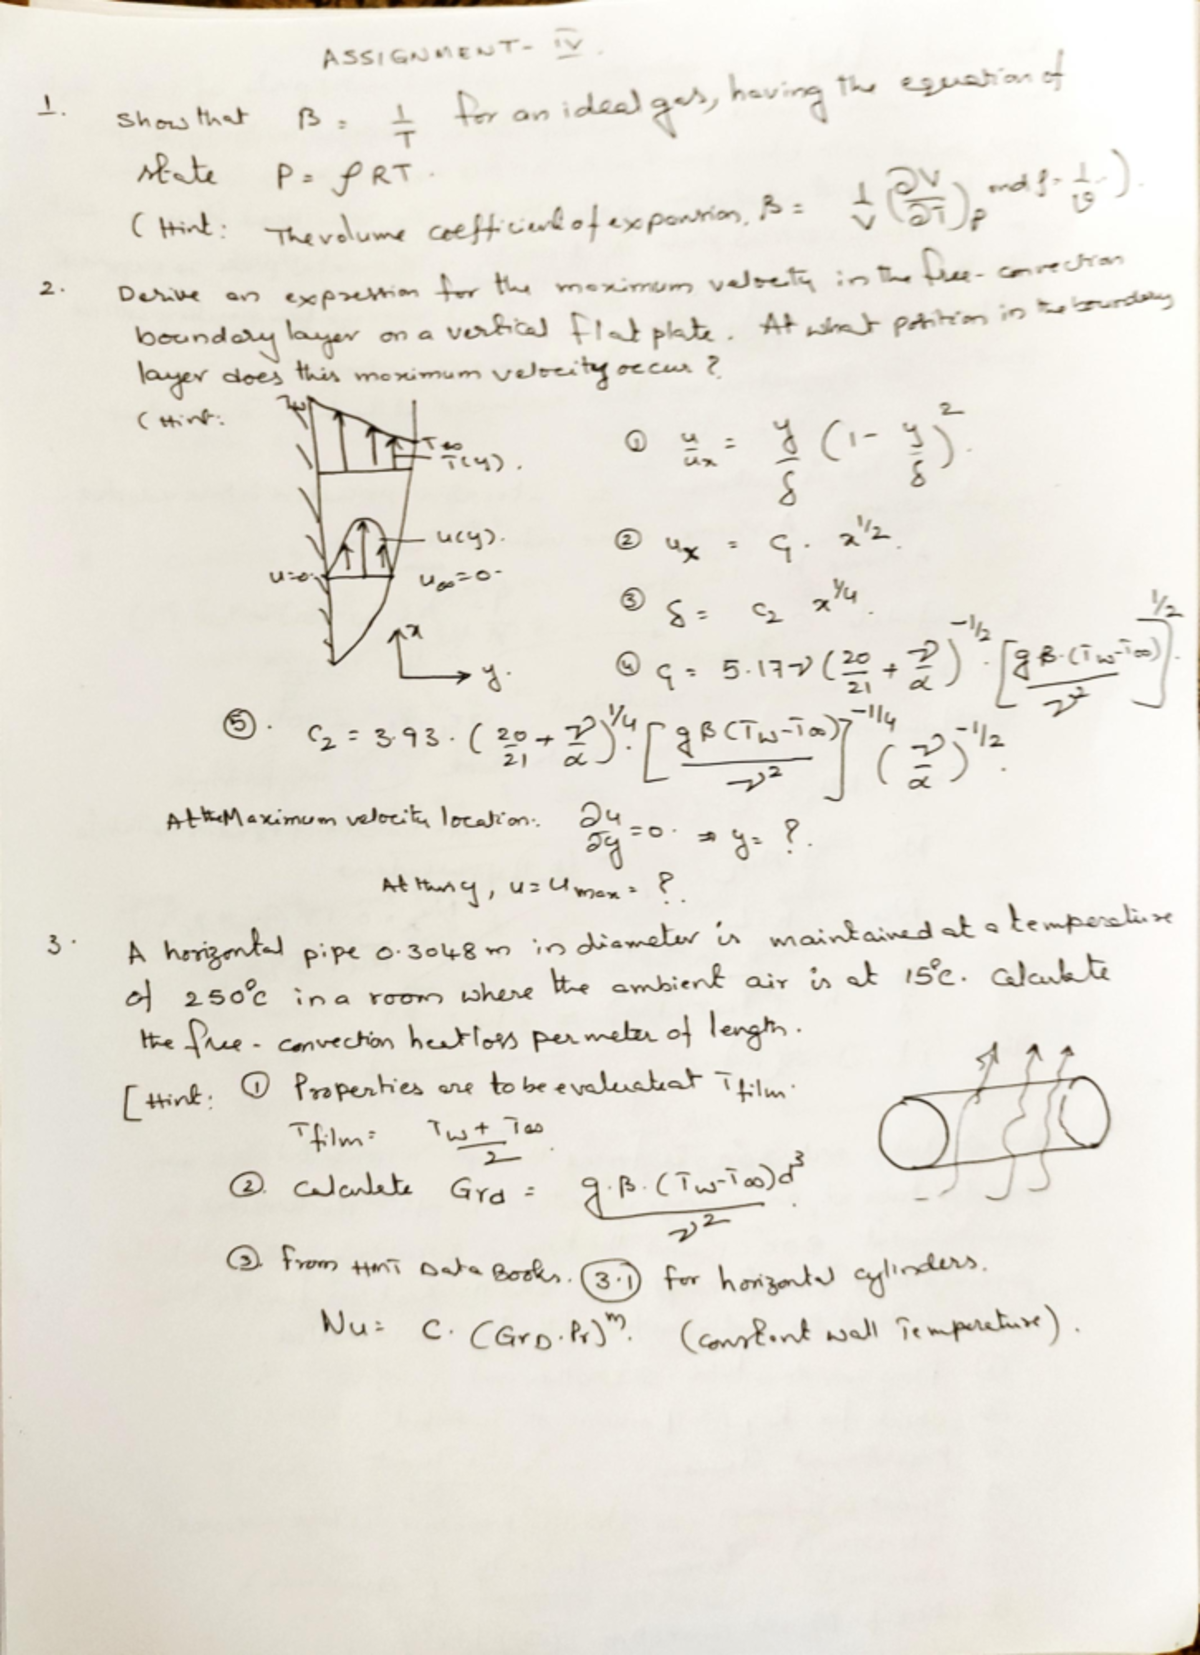 ASSIGNMENT - IV.
1. Show that β = 1/T for an ideal gas, having the equation of
state P = ρRT.
(Hint: The volume coefficient of expansion, β = 1/V (∂V/∂T)p and ρ = 1/v.).
2. Derive an expression for the maximum velocity in the free-convection
boundary layer on a vertical flat plate. At what position in the boundary
layer does this maximum velocity occur?
(Hint:
Tw
T∞
T(y).
u(y).
u=0
u∞=0
x
y.
① u/ux = y/δ (1 - y/δ)^2.
② ux = C1 · x^1/2.
③ δ = C2 x^1/4.
④ C1 = 5.17ν (20/21 + ν/α)^-1/2 · [gβ·(Tw-T∞)/ν^2]^1/2.
⑤. C2 = 3.93 · (20/21 + ν/α)^1/4 · [gβ(Tw-T∞)/ν^2]^-1/4 (ν/α)^-1/2.
At the Maximum velocity location: ∂u/∂y = 0. ⇒ y = ?.
At this y, u = umax = ?.
3. A horizontal pipe 0.3048 m in diameter is maintained at a temperature
of 250°c in a room where the ambient air is at 15°c. Calculate
the free-convection heat loss per meter of length.
[Hint: ① Properties are to be evaluated at Tfilm.
Tfilm = Tw + T∞/2.
②. Calculate Grd = g·β·(Tw-T∞)d^3/ν^2.
③. From HMT Data Books. (3.1) for horizontal cylinders.
Nu = C· (GrD·Pr)^m. (constant wall Temperature).